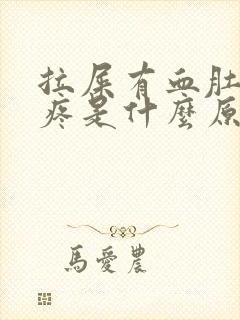 拉屎有血肚
疼是什麼原
馬愛農